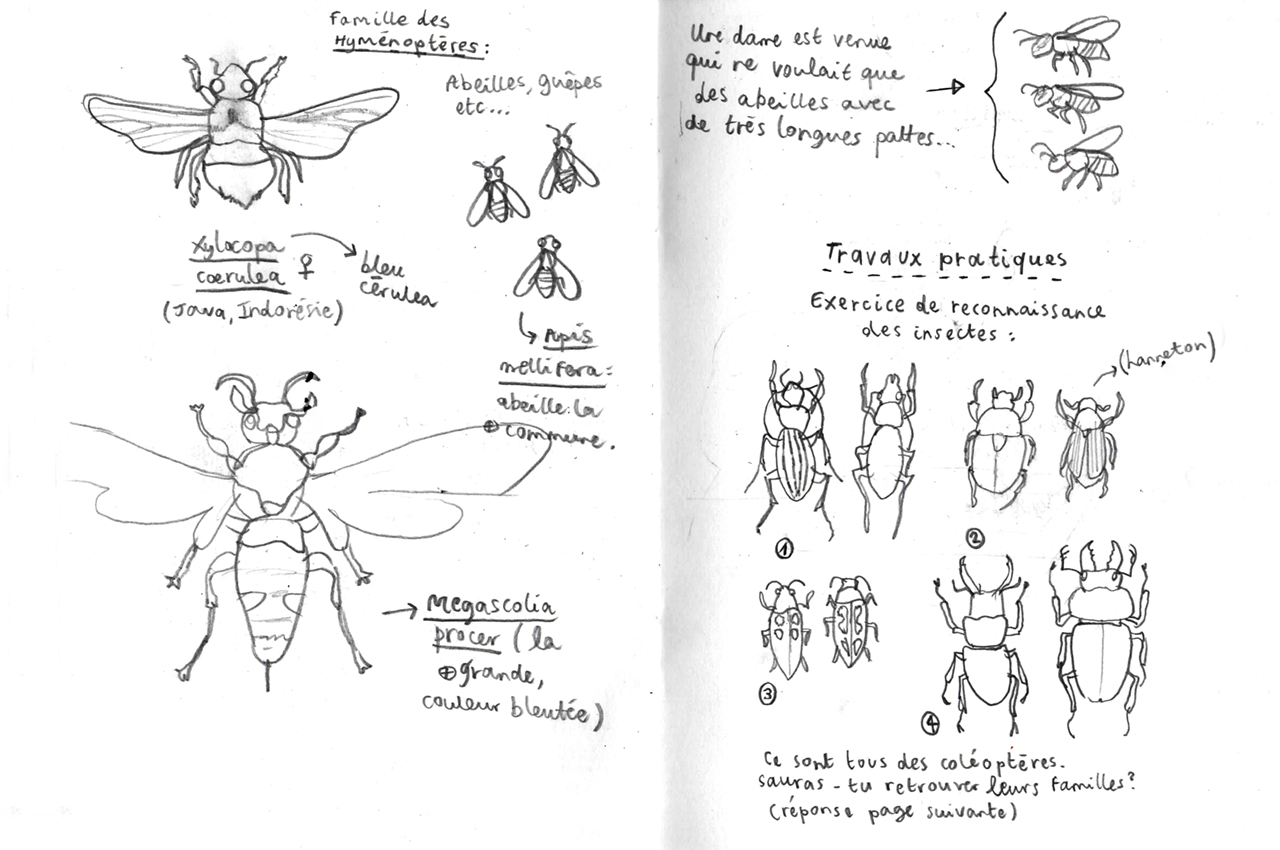 Famille des
Hyménoptères :
Abeilles, guêpes
etc...
Xylocopa
coerulea ♀
(Java, Indonésie)
bleu
cérulea
Apis
mellifera :
abeille la
⊕ commune.
Megascolia
procer (la
⊕ grande,
couleur bleutée)
Une dame est venue
qui ne voulait que
des abeilles avec
de très longues pattes...
Travaux pratiques
Exercice de reconnaissance
des insectes :
(hanneton)
①
②
③
④
Ce sont tous des coléoptères.
sauras-tu retrouver leurs familles?
(réponse page suivante)